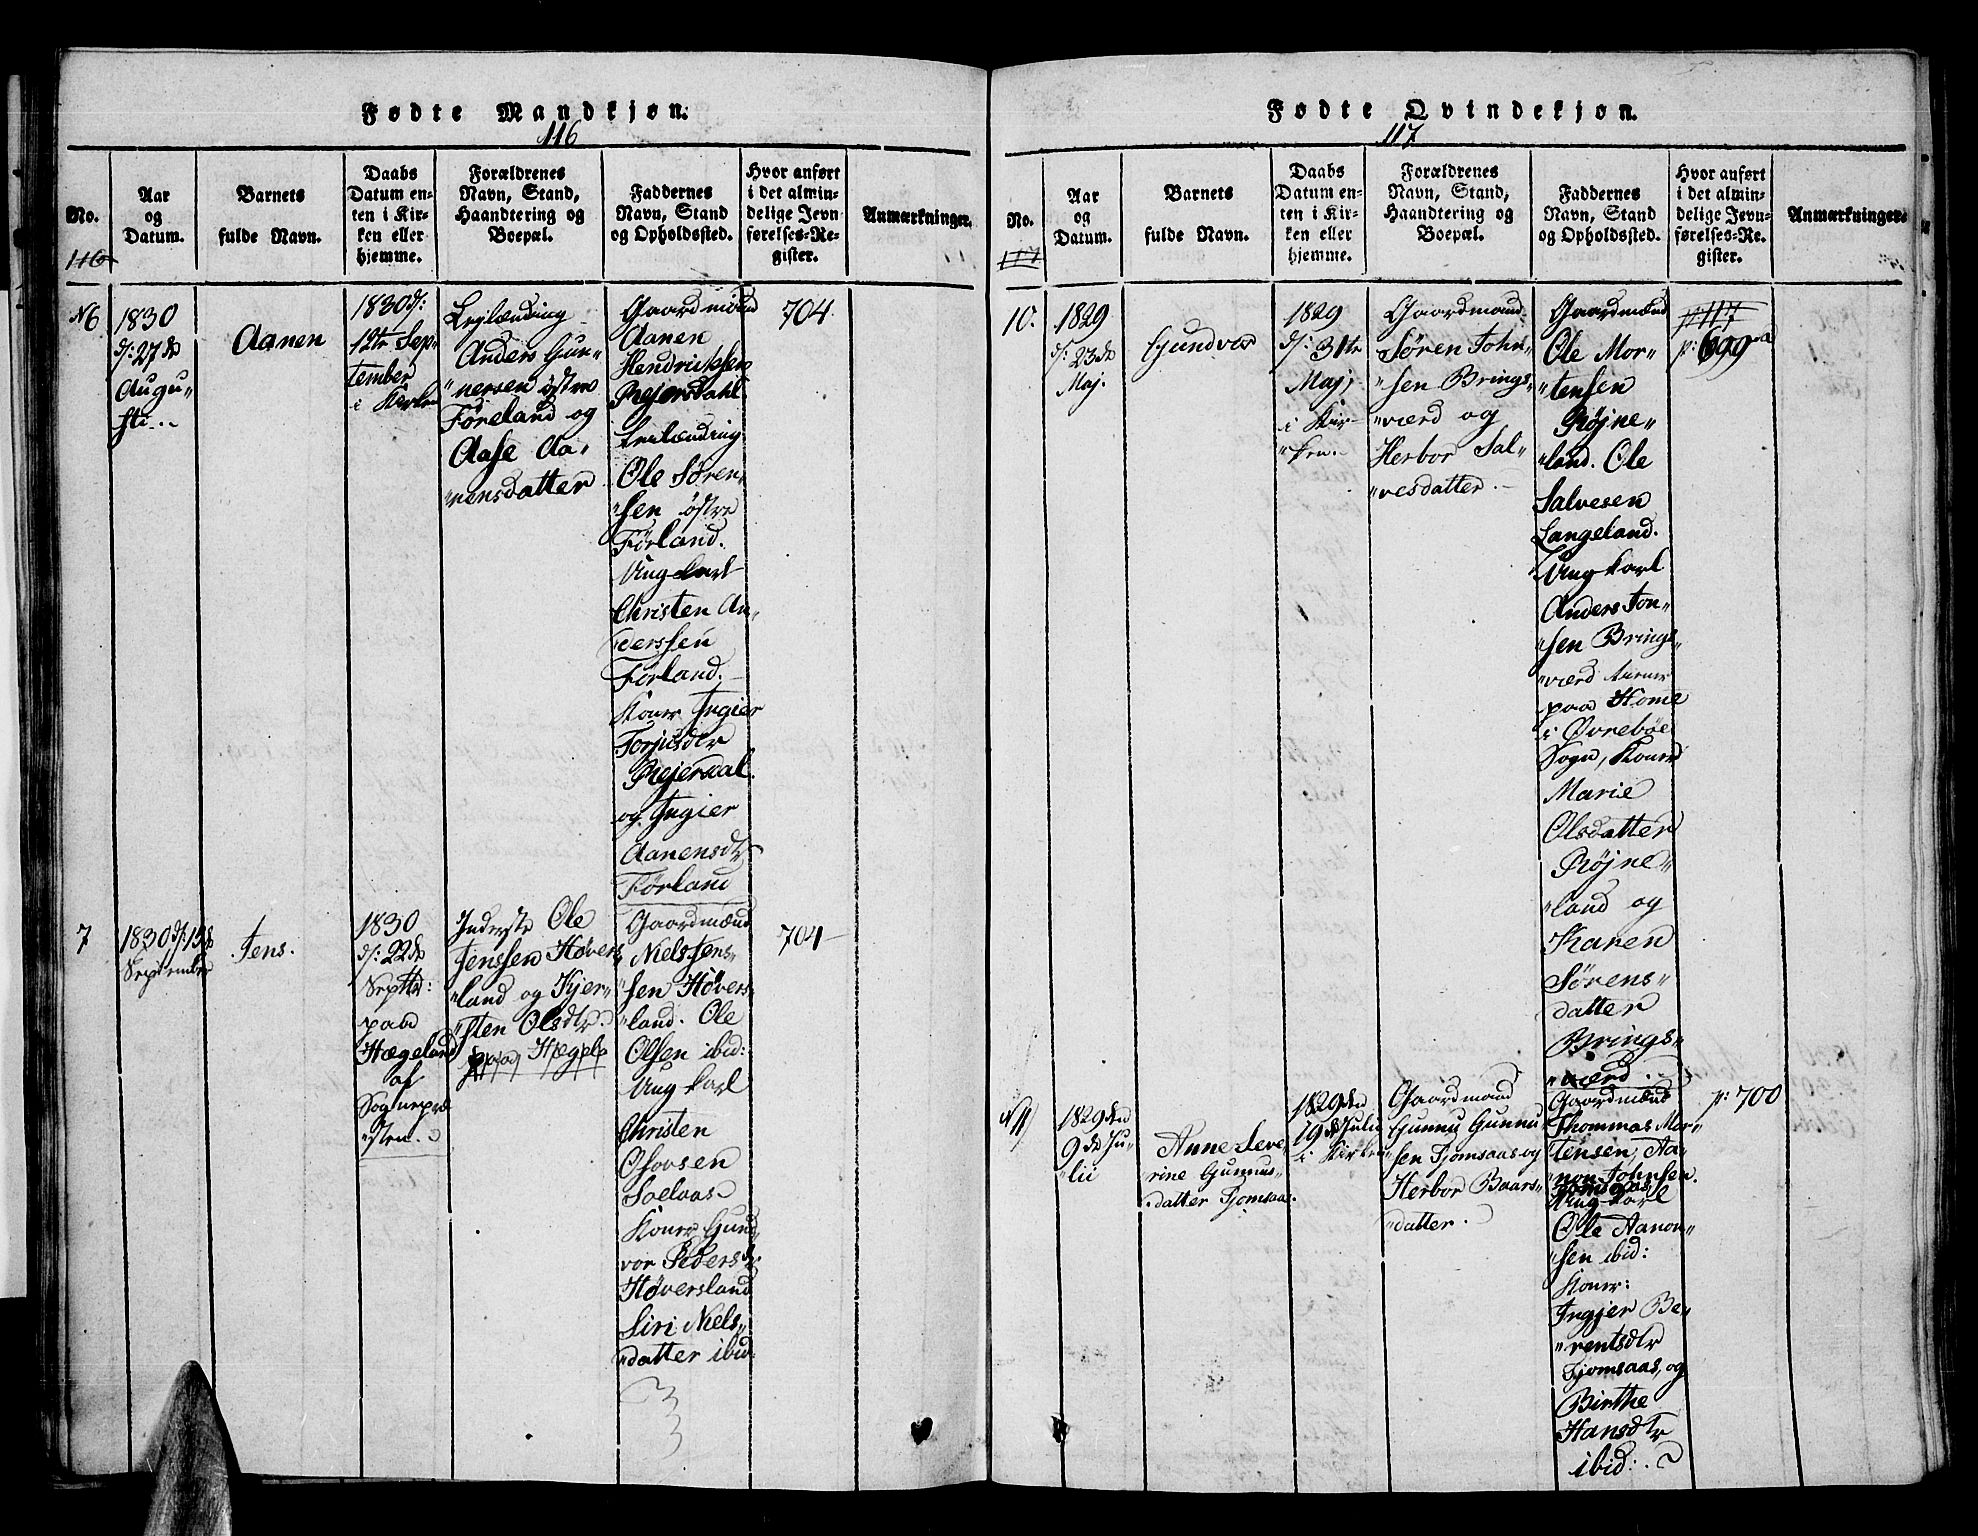 Fødte Mandkjøn.
116
No.
116
Aar
og
Datum.
Barnets
fulde Navn.
Daabs
Datum en-
ten i Kir-
ken eller
hjemme.
Forældrenes
Navn, Stand,
Haandtering og
Boepæl.
Faddernes
Navn, Stand
og Opholdssted.
Hvor anført
i det almin-
delige Jevn-
førelses-Re-
gister.
Anmærkninger.
N6
1830
d: 27de
Augu-
sti..
Aanen
1830 d:
12te Sep-
tember
i Kirken
Leilænding
Anders Gun-
"nersen østre
Føreland og
Aase Aa-
"nensdatter
Gaardmænd
Aanen
Hendrichsen
Reiersdahl.
Leilænding
Ole Søren-
"sen østre
Førland.
Ung karl
Christen An-
"derssen
Førland.
Koner Ingier
Torjusdtr
Reiersdal.
og Ingier
Aanensdtr
Førland
704
7
1830 d: 15de
September
Jens.
1830
d: 22de
Septbr:
paa
Hægeland
af
Sognepræ
"sten.
Inderste Ole
Jenssen Høvers
"land og Kjer-
"sten Olsdtr.
paa Hægel
Gaardmænd
Niels Jens-
"sen Høvers-
"land. Ole
Olsen ibid:
Ung karl
Christen
Olsen
Koner Gund
vor Pedersdr
Høversland
Siri Niels-
"datter ibid:
704
Fødte Qvindekjøn.
117
No.
117
Aar
og
Datum.
Barnets
fulde Navn.
Daabs
Datum en-
ten i Kir-
ken eller
hjemme.
Forældrenes
Navn, Stand,
Haandtering og
Boepæl.
Faddernes
Navn, Stand
og Opholdssted.
Hvor anført
i det almin-
delige Jevn-
førelses-Re-
gister.
Anmærkninger.
10.
1829
d: 23de
Maj.
Gundvor
1829
d: 31te
Maj,
i Kir-
"ken.
Gaardmand
Søren John-
"sen Brings-
"værd og
Herbor Sal-
"vesdatter.
Gaardmænd
Ole Mor-
"tensen
Røjne-
"land. Ole
Salvesen
Langeland.
Ung karl
Anders Jon-
"sen Brings-
"værd
paa Home
i Øvrebøe
Sogn, Koner
Marie
Olsdatter
Røjne-
"land og
Karen
Sørens-
datter
Brings-
"værd.
p: 117
p: 699
N11
1829 den
9de Ju-
"lii
Anne Seve
rine Gunnus-
datter Fjomsaas.
1829 den
19de Julii
i Kirken
Gaardmand
Gunnu Gunnu
sen Fjomsaas og
Herbor Baars-
"datter.
Gaardmænd
Thommas Mor-
tensen, Aa-
"non Johnsen
Fjomsaas,
Ung karl
Ole Aanon-
"sen ibid:
Koner:
Ingjer Be-
"rentsdtr
Fjomsaas, og
Birthe
Hansdtr
ibid:
p: 700